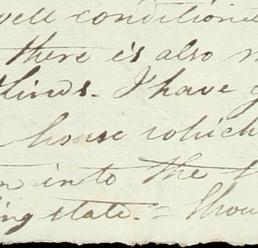 well conditione
there is also
blinds. I have
house which
into the
ing state. - Shou